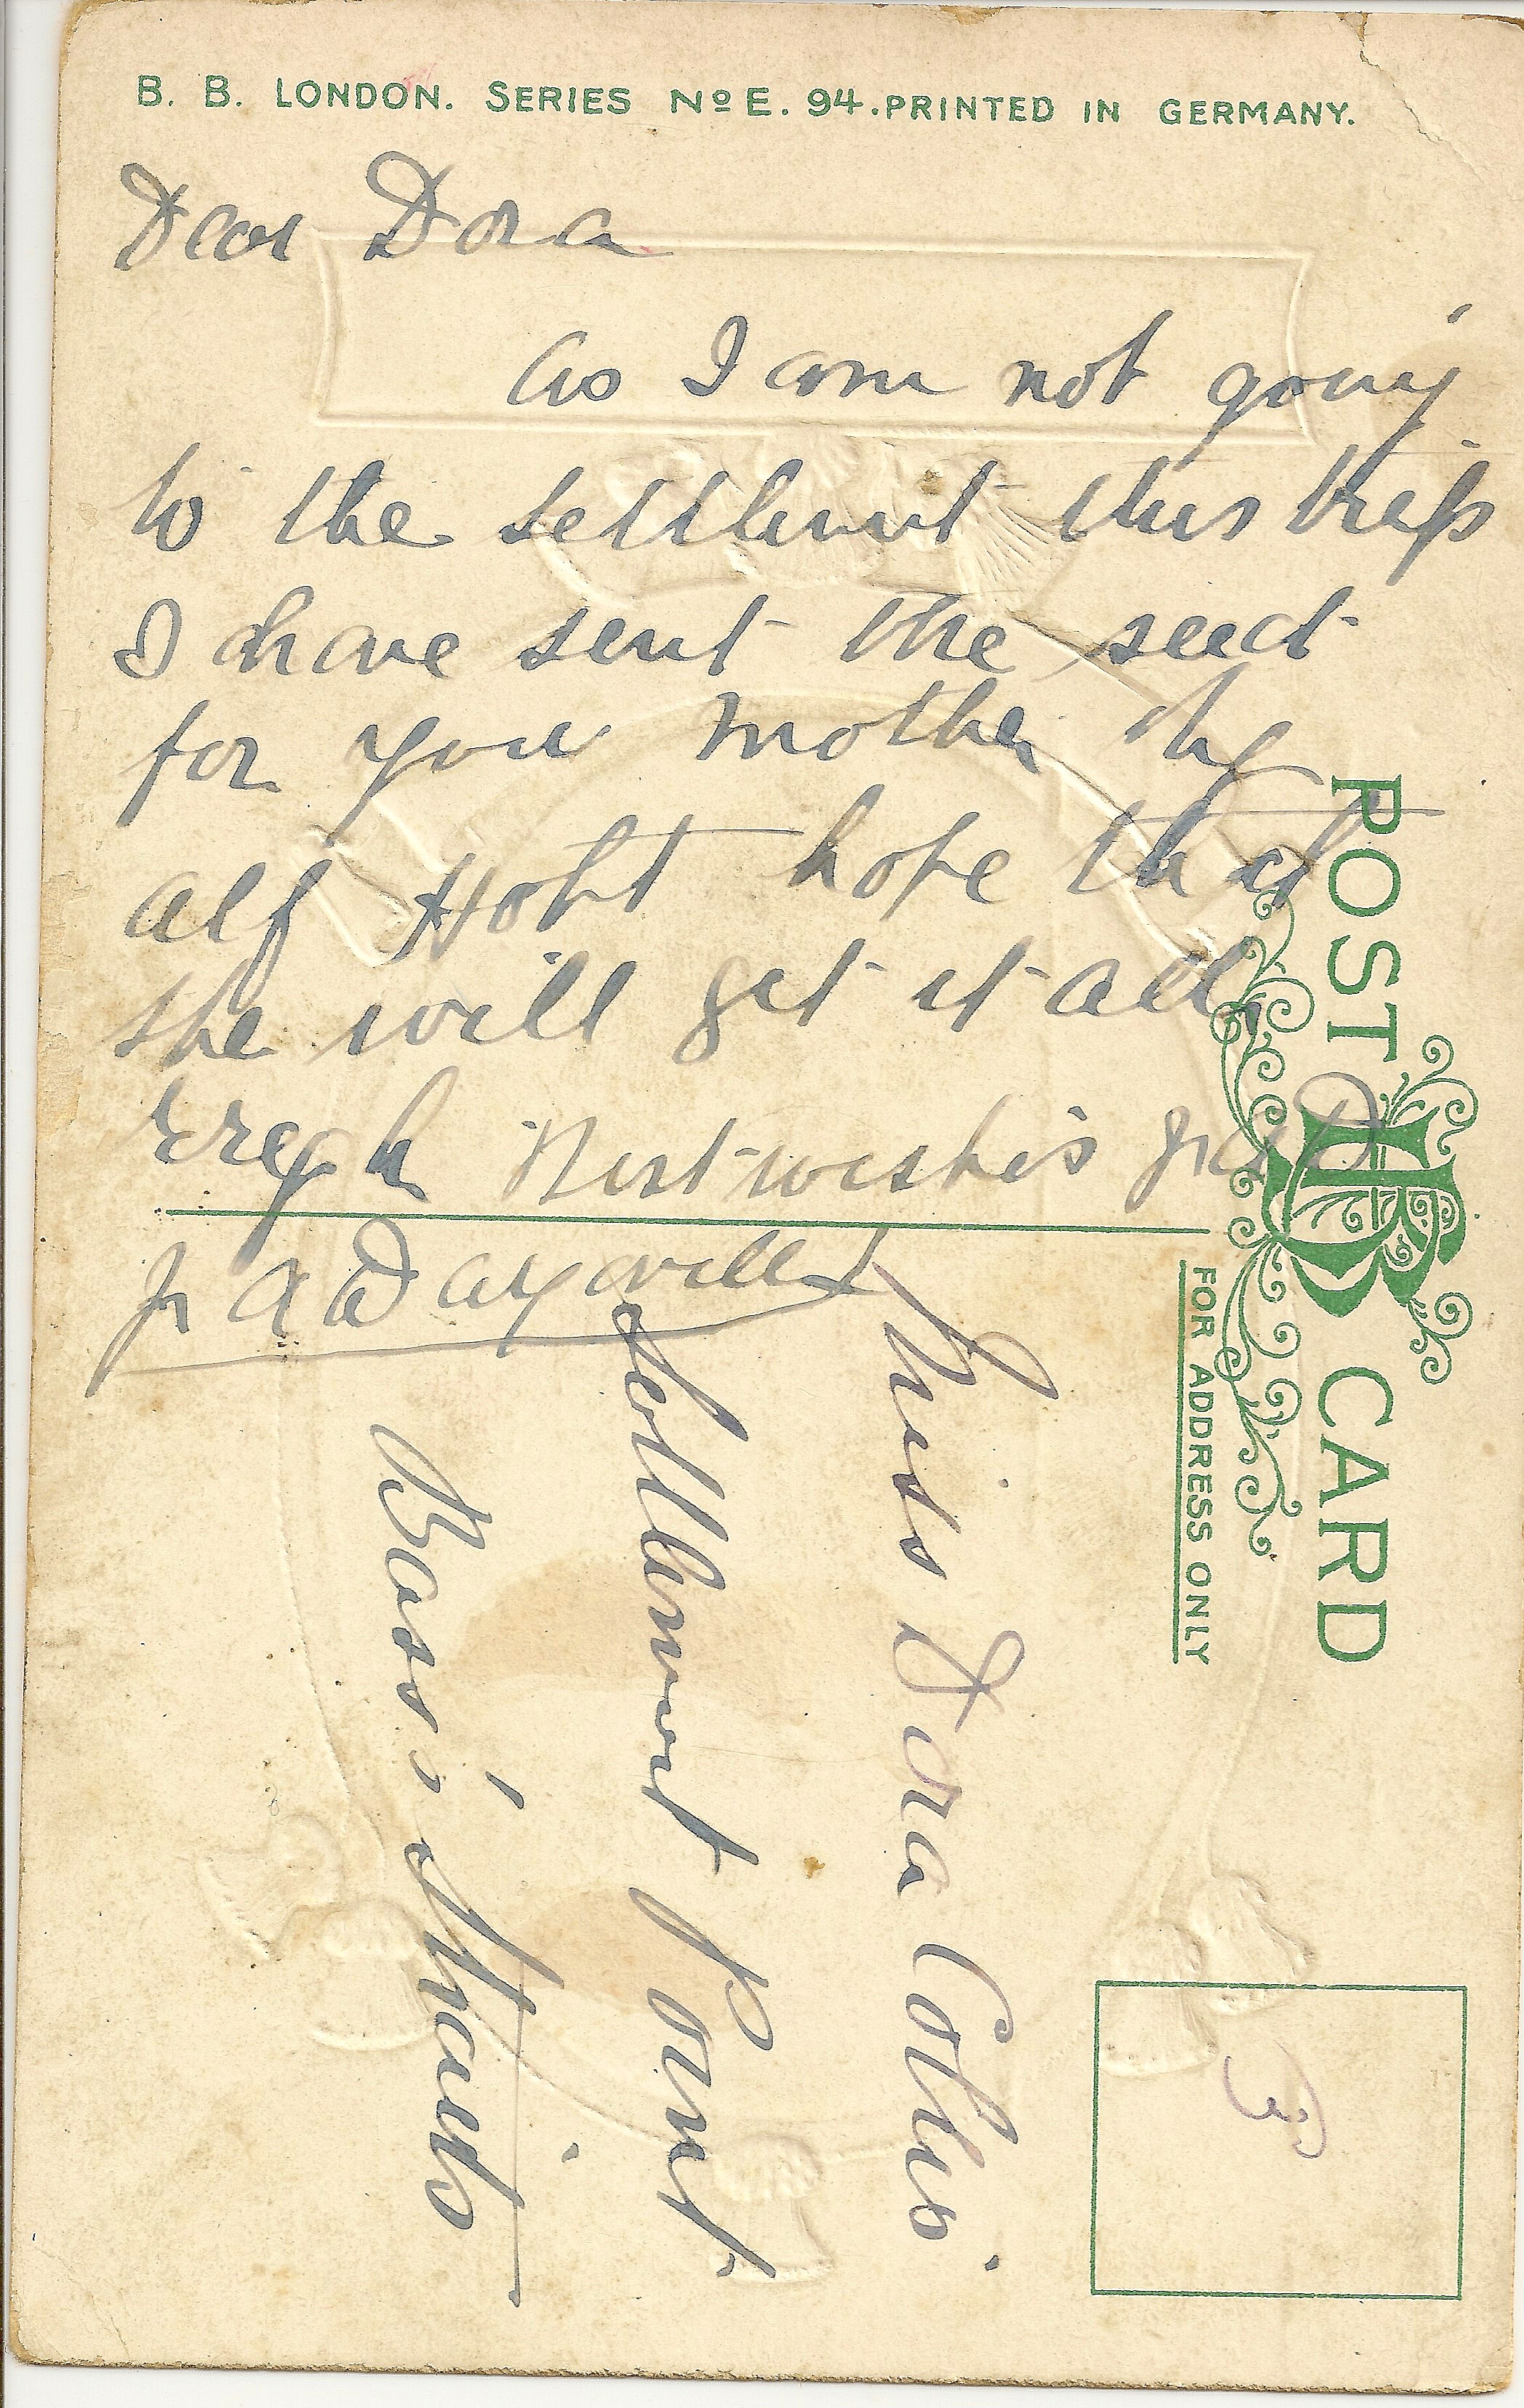 B. B. LONDON. SERIES Nº E. 94. PRINTED IN GERMANY.
Dear Dora
as I am not going
to the settlment this trip
I have sent the seed
for your mother by
Alf Holt hope that
she will get it all
Best wishes
POST CARD
FOR ADDRESS ONLY
Miss Dora Collis.
Settlement Point
Bass's Straits
3